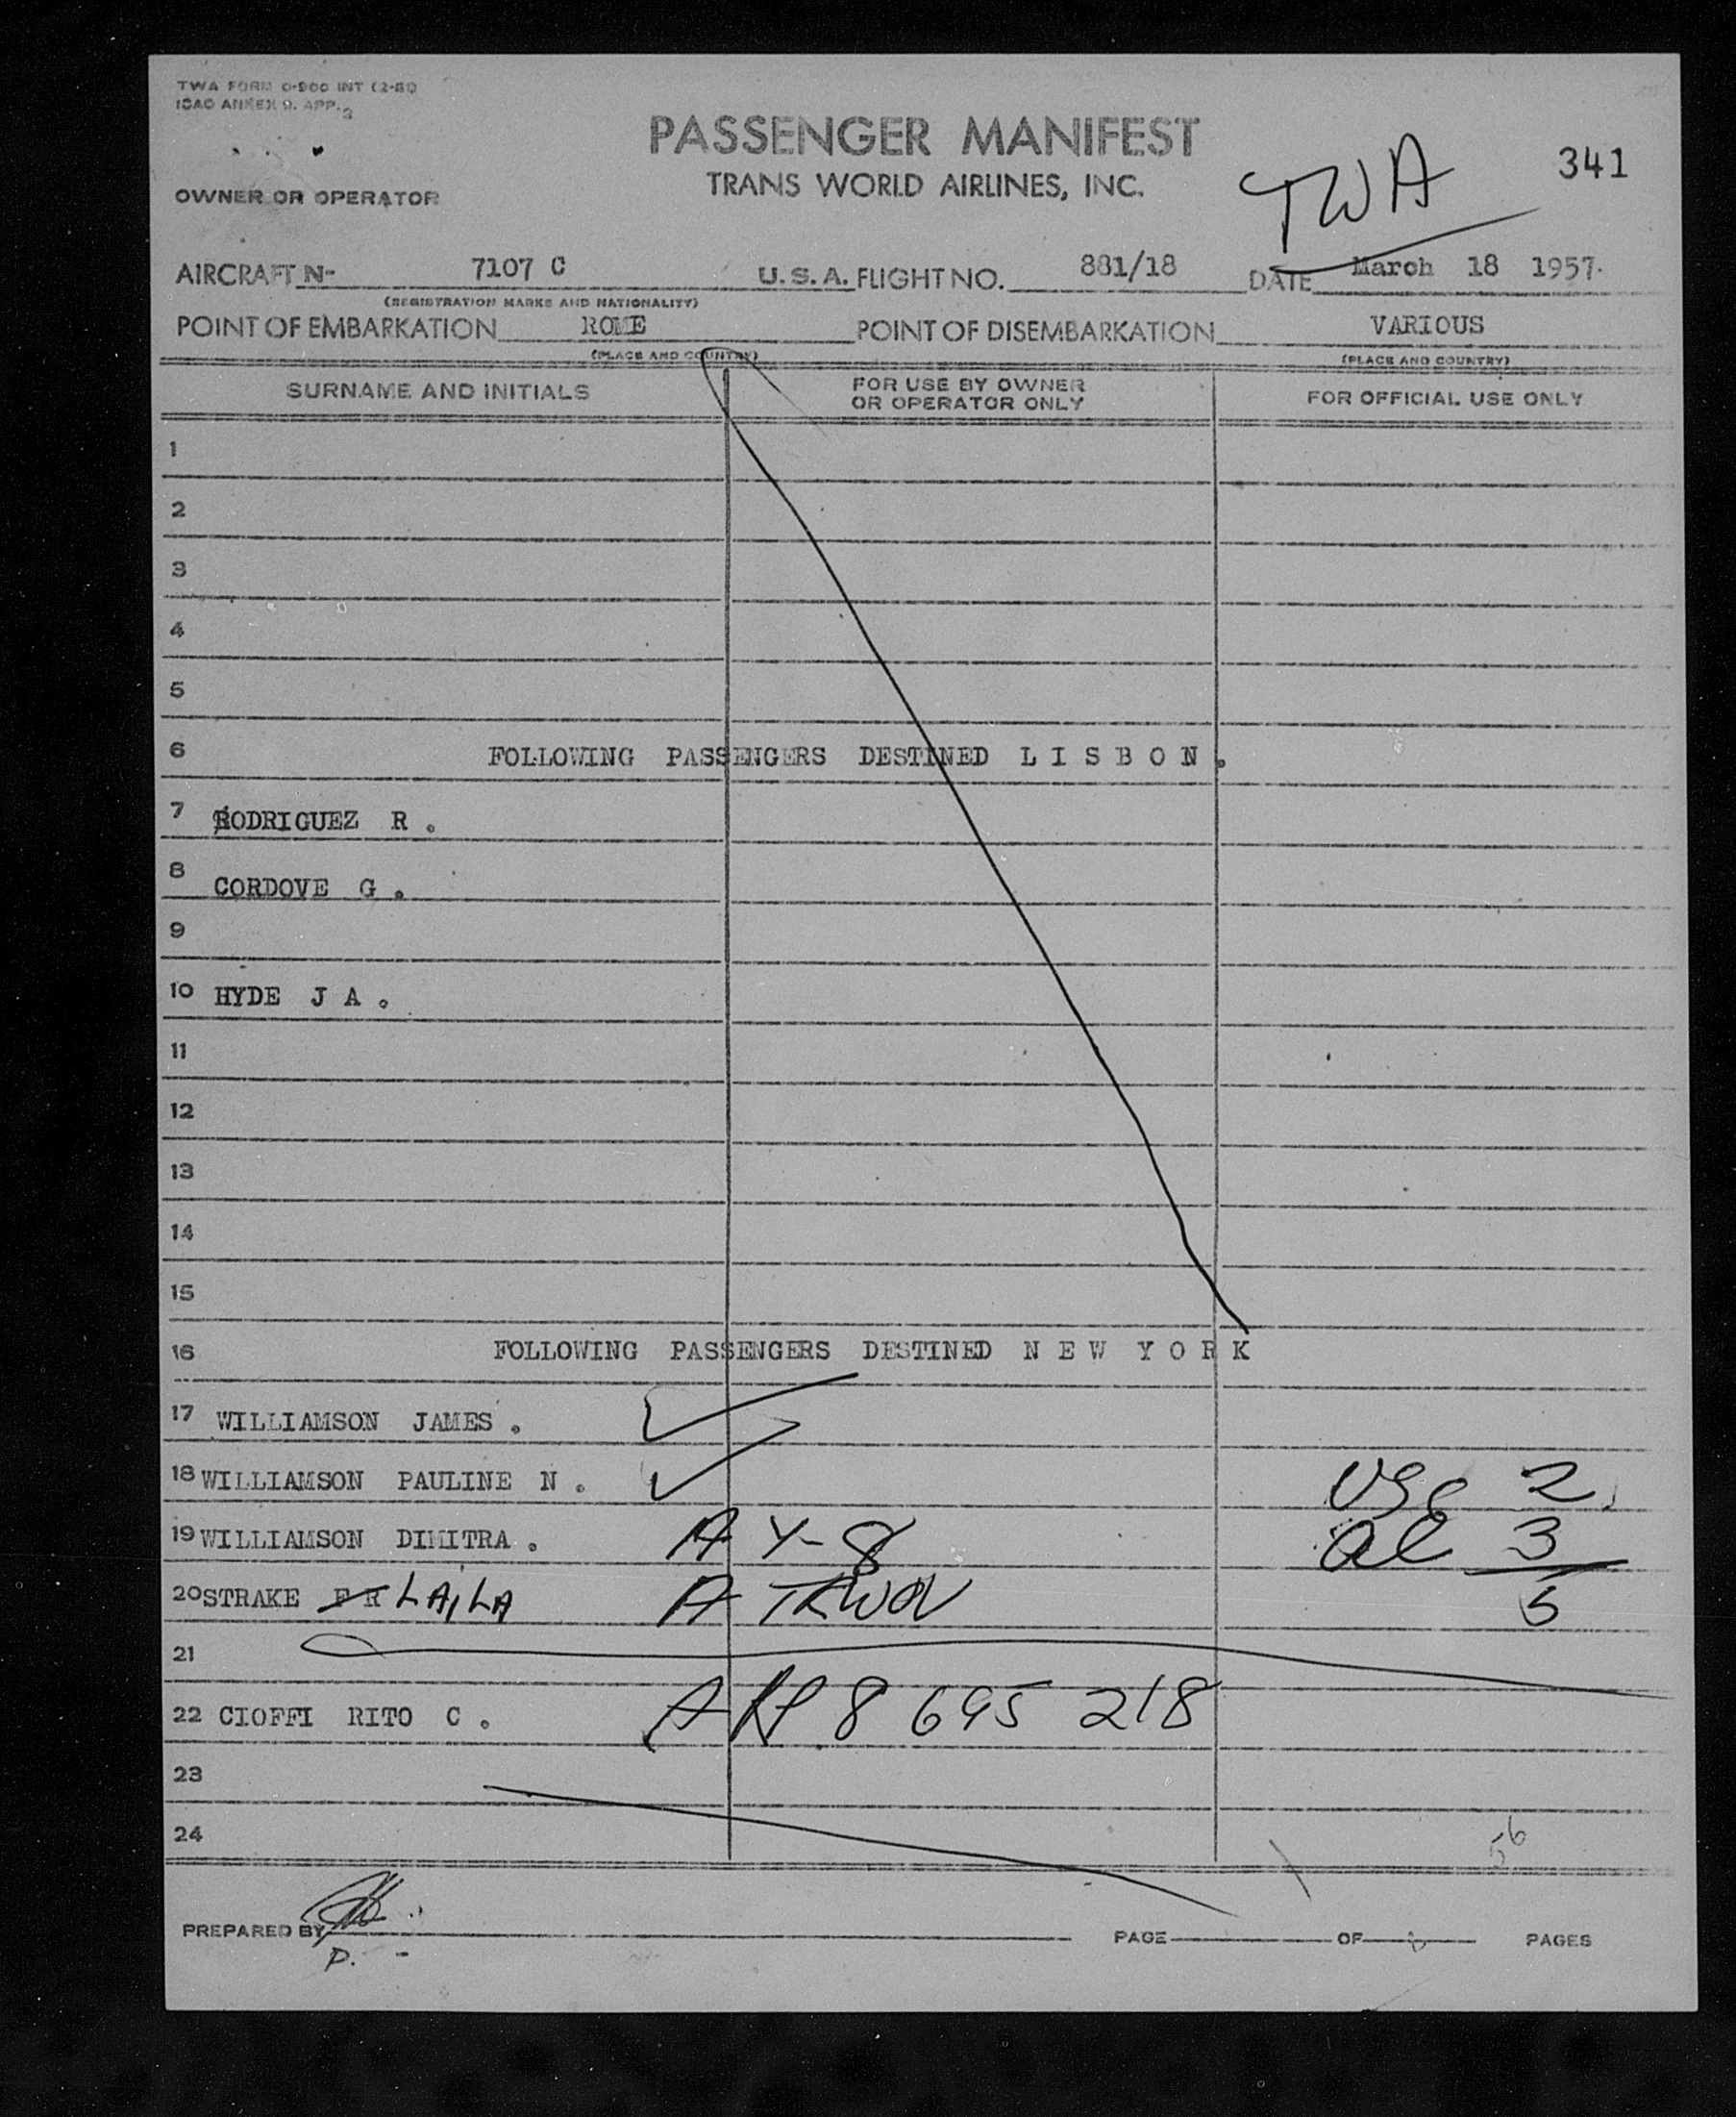 TWA FORM O-900 INT (2-51)
ICAO ANNEX 9. APP. 2
PASSENGER MANIFEST
TRANS WORLD AIRLINES, INC.
TWA
341
OWNER OR OPERATOR
AIRCRAFT N- 7107 C U. S. A. FLIGHT NO. 881/18 DATE March 18 1957.
(REGISTRATION MARKS AND NATIONALITY)
POINT OF EMBARKATION ROME POINT OF DISEMBARKATION VARIOUS
(PLACE AND COUNTRY) (PLACE AND COUNTRY)
SURNAME AND INITIALS FOR USE BY OWNER OR OPERATOR ONLY FOR OFFICIAL USE ONLY
1
2
3
4
5
6 FOLLOWING PASSENGERS DESTINED L I S B O N .
7 RODRIGUEZ R .
8 CORDOVE G .
9
10 HYDE J A .
11
12
13
14
15
16 FOLLOWING PASSENGERS DESTINED N E W Y O R K
17 WILLIAMSON JAMES .
18 WILLIAMSON PAULINE N . USC 2
19 WILLIAMSON DIMITRA . A Y-8 al 3
20 STRAKE F R LAILA A TRWOV 5
21
22 CIOFFI RITO C . A RP 8 695 218
23
24
56
PREPARED BY PAGE OF PAGES
P.